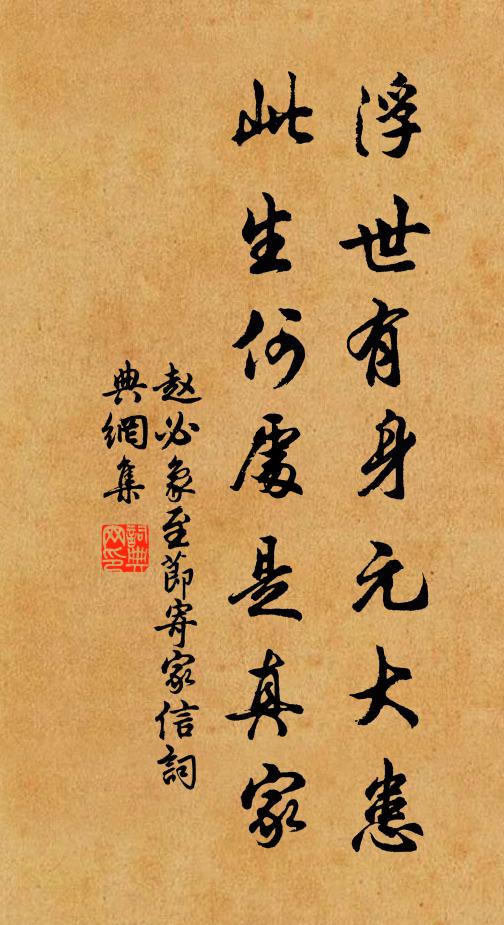 浮世有身元大患
此生何處是真家
赵必象至節寄家信詞
典網集
詞典网印